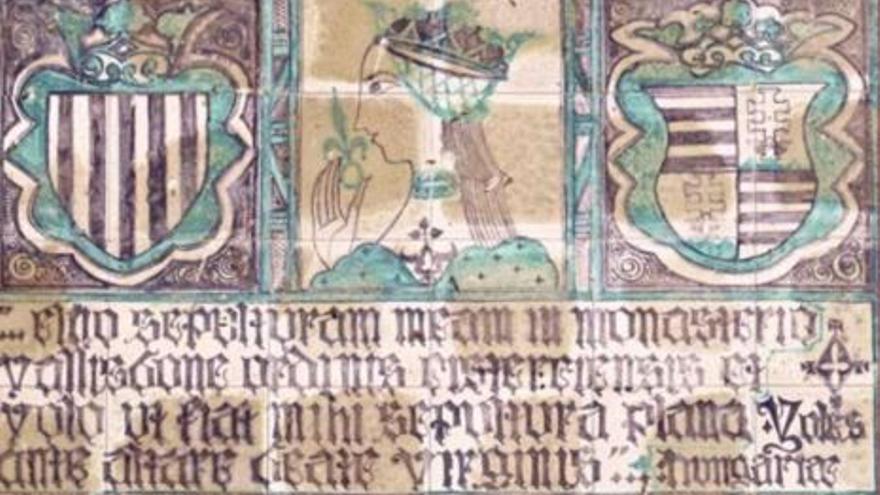 "... eligo sepelturam meam in monasterio
vallisbone ordinis cisterciensis et
volo ut fiat mihi sepultura plana Yoles
ante altare beate virginis"... hungariae